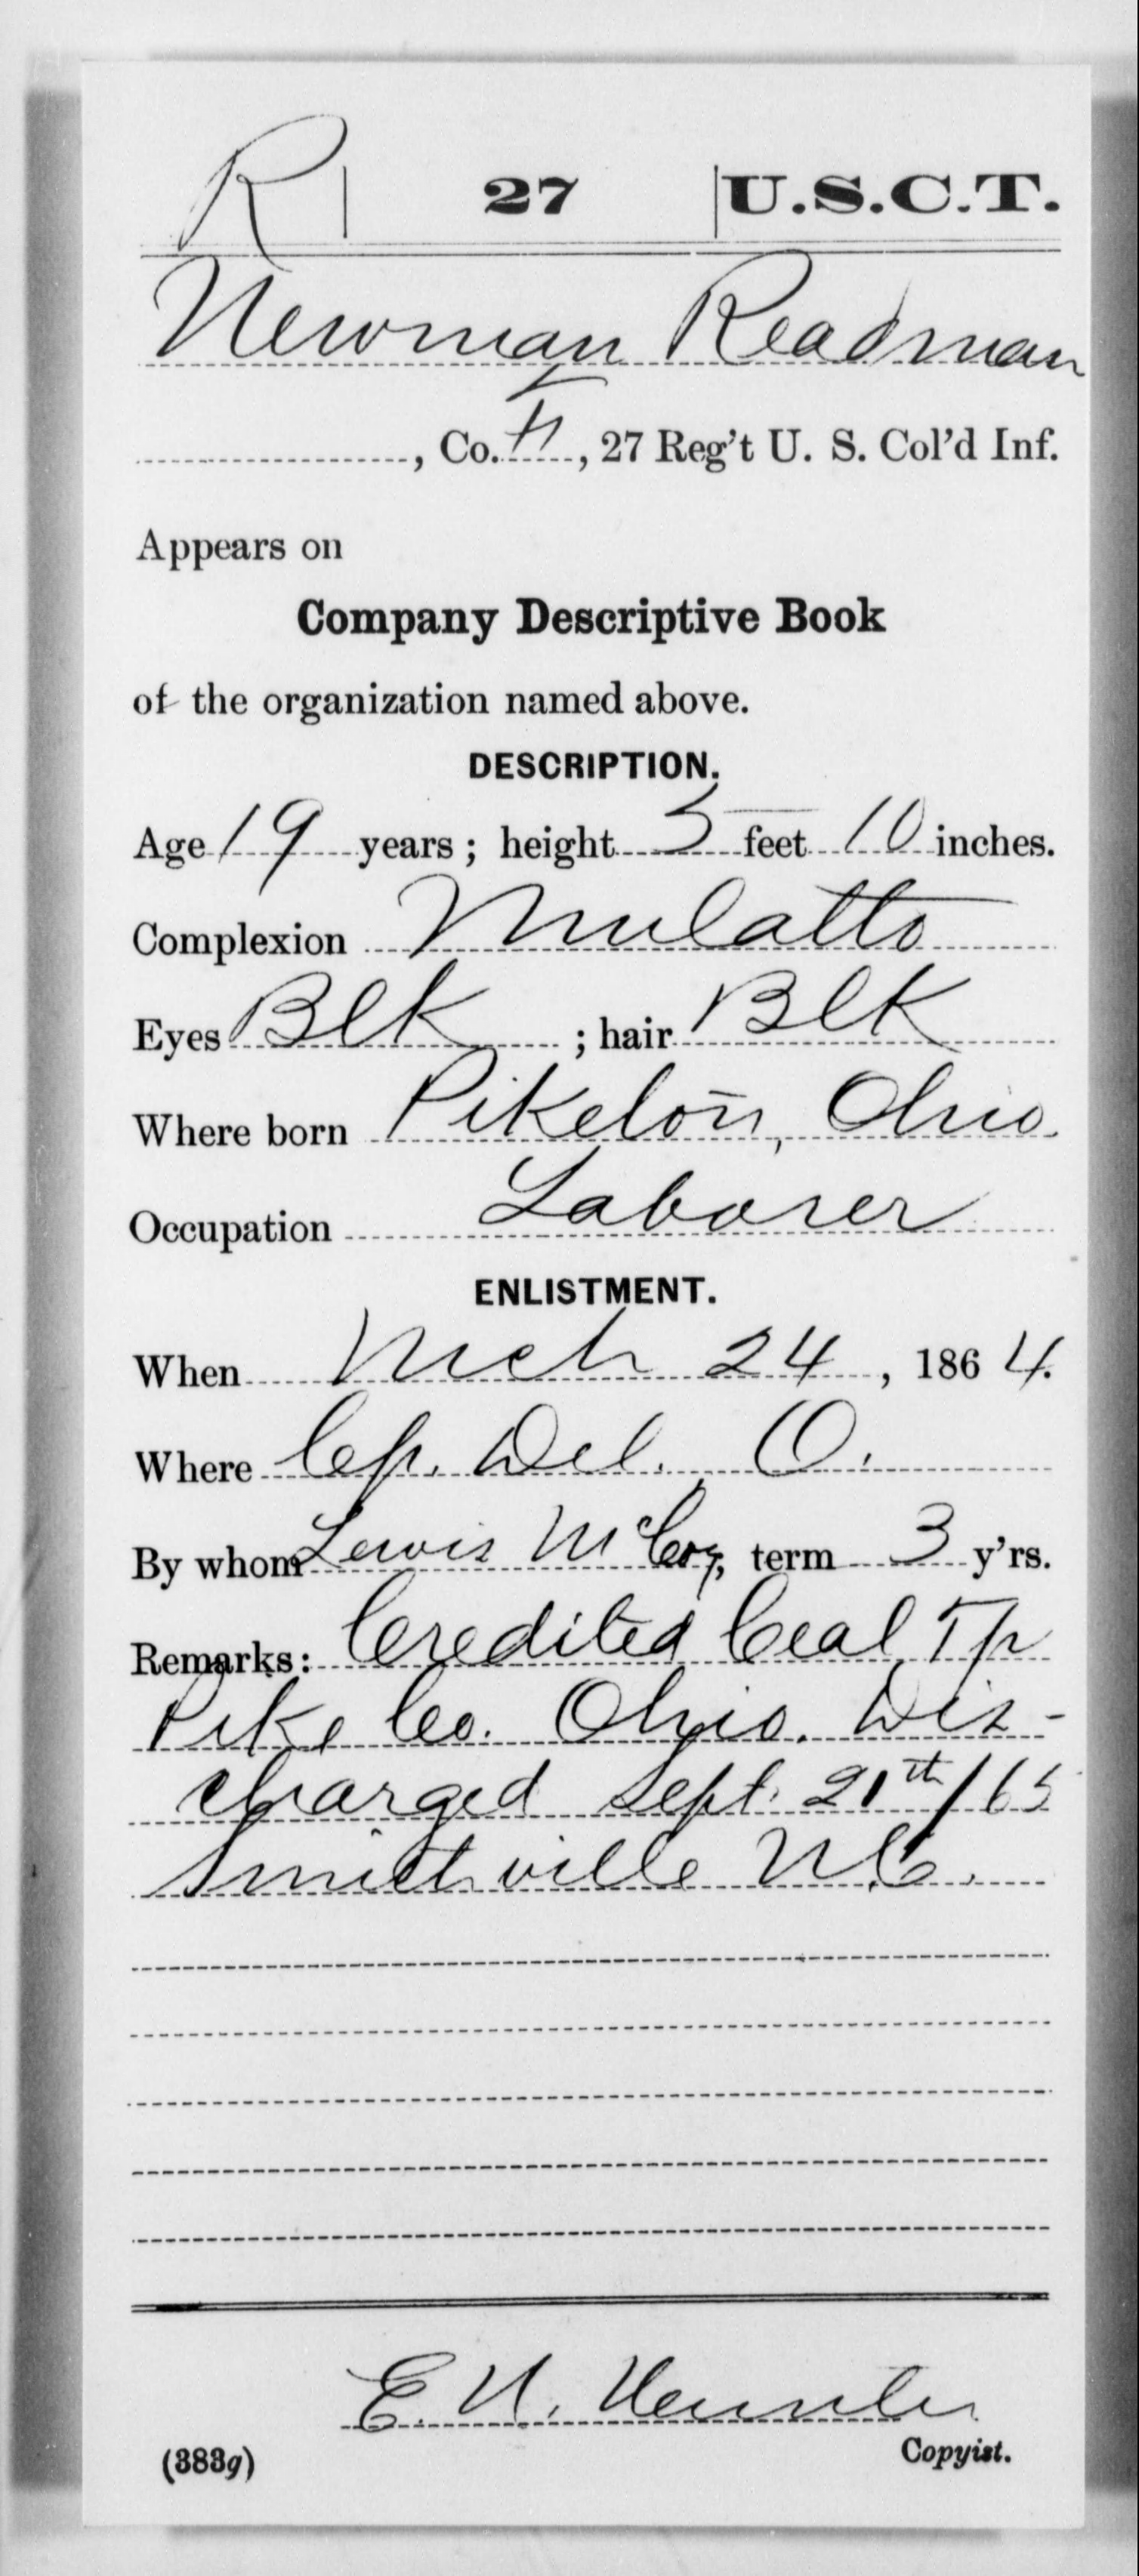 R | 27 | U.S.C.T.
Newman Readman
, Co. H, 27 Reg't U. S. Col'd Inf.
Appears on
Company Descriptive Book
of the organization named above.
DESCRIPTION.
Age 19 years; height 5 feet 10 inches.
Complexion Mulatto
Eyes Blk ; hair Blk
Where born Piketon, Ohio.
Occupation Laborer
ENLISTMENT.
When Mch 24, 1864.
Where Cp. Del. O.
By whom Lewis McCoy, term 3 y'rs.
Remarks: Credited Tp
Pike Co. Ohio. Dis-
charged Sept. 21th/65
Smithville N.C.
E.
Copyist.
(383g)